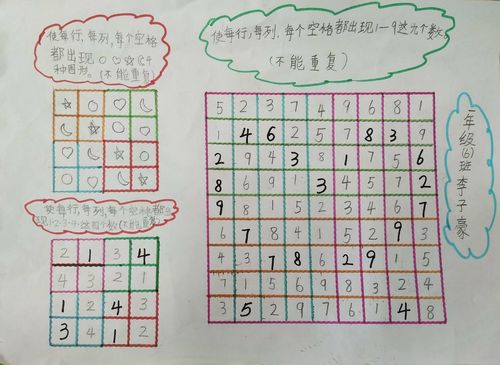 使每行,每列,每个空格
都出现○♡☆☾4
种图形。(不能重复)
使每行,每列,每个空格都出现1—9这九个数。
(不能重复)
5 2 3 7 4 9 6 8 1
1 4 6 2 5 7 8 3 9
2 9 4 3 8 1 7 5 6
8 6 9 1 3 4 5 7 2
9 8 1 5 2 3 4 6 7
6 7 8 4 1 5 2 9 3
4 3 7 8 6 2 9 1 5
7 1 5 6 9 8 3 2 4
3 5 2 9 7 6 1 4 8
使每行,每列,每个空格都出
现1·2·3·4·这四个数(不能重复)
2 1 3 4
4 3 2 1
1 2 4 3
3 4 1 2
一年级(6)班李子豪